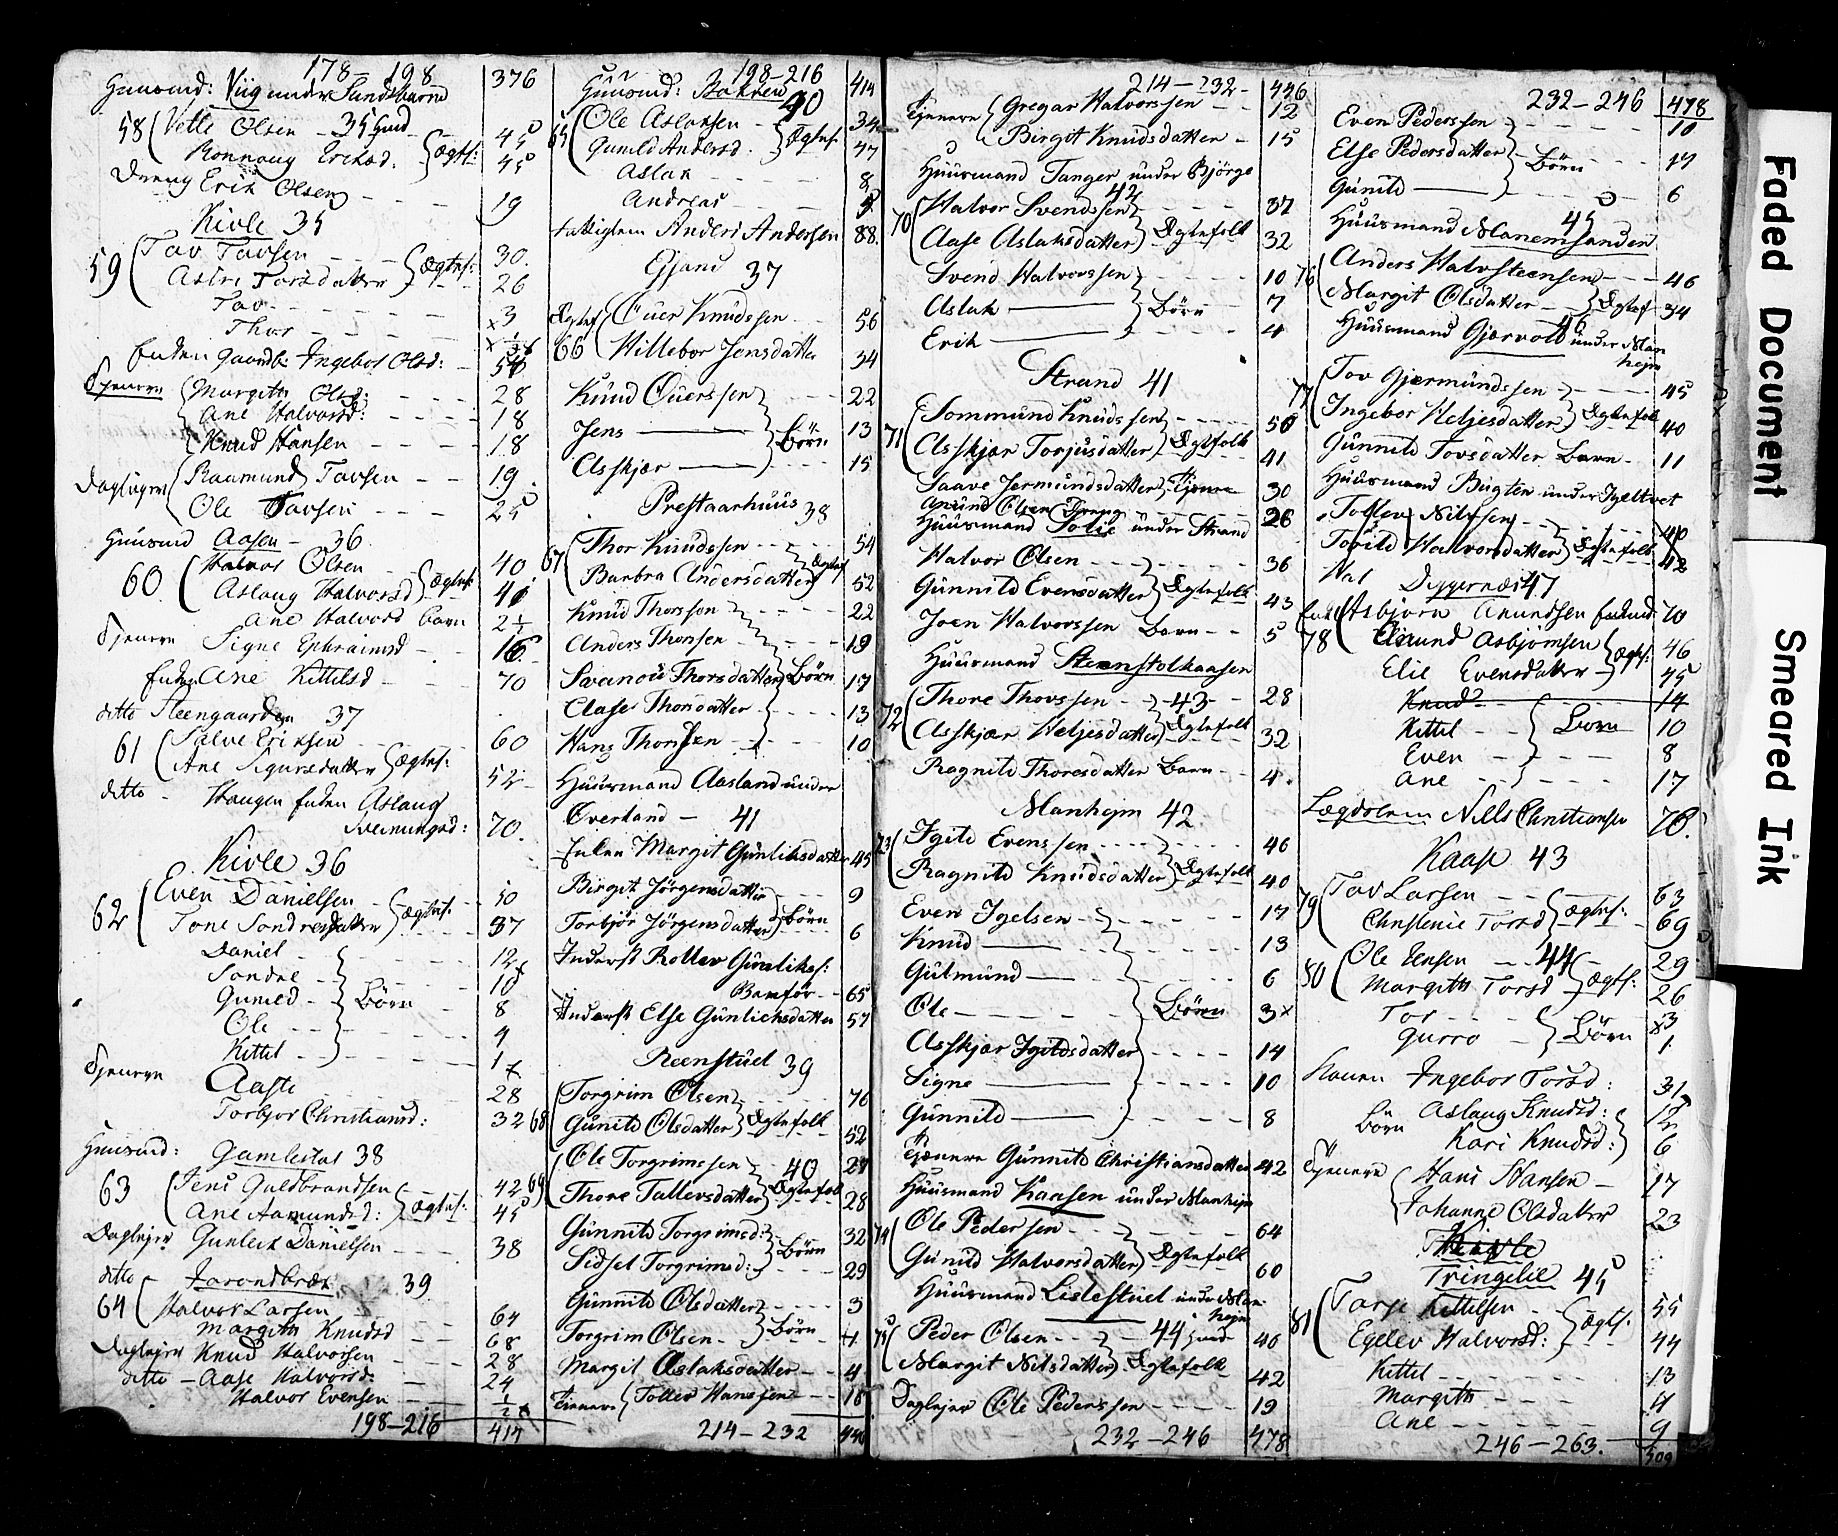 178-198 376
Huusmd: Viig under Sundsbarm
58 Vetle Olsen - 35 Huusmd
Ronnoug Eriksd. Ægtf: 45 45
Dreng Erik Olsen 19
Kivle 35
59 Tov Tovsen 30
Astri Torsdatter Ægtef: 26
Tov x3
Thor
Enken Ingebor Olsd: 50
Tjenere Margith Olsd: 28
Ane Halvorsd: 18
Knud Hansen 18
Daglejere Raamund Tovsen 19
Ole Tovsen 25
Huusmd Aasen - 36
60 Halvor Olsen 40
Aslaug Halvorsd Ægtef: 40
Ane Halvorsd barn 2½
Tjenere Signe Ephraimsd 16
Enken Ane Kittelsd 70
ditto Steengaarden 37
61 Salve Eriksen 60
Ane Sigursdatter Ægtef: 52
ditto - Haugen Enken Aslaug
Sveinungsd: 70
Kivle 36
62 Even Danielsen 50
Tone Sondresdatter Ægtef: 37
Daniel 12
Sondre 10
Guneld Börn 8
Ole 4
Kittel 1
Tjenere Aaste 28
Torbjor Christiansd: 32
Huusmd: Gamlestul 38
63 Jens Guldbrandsen 42
Ane Aamundsd: Ægtef: 45
Daglejer Gunleik Danielsen 38
ditto 39
64 Halvor Larsen 64
Margith Knudsd 68
Daglejer Knud Halvorsen 28
ditto - Aase Halvorsd: 24
Halvor Evensen ½
198-216 414
198-216 414
Huusmd: Bakken 40
65 Ole Aslaksen 34
Guneld Andersd. Ægtef. 47
Aslak 8
Andreas 5
Fattiglem Anders Andersen 88
Gjsund 37
Ægtef Ouer Knudssen 56
66 Hillebor Jensdatter 34
Knud Ouerssen 22
Jens Börn 13
Asskjær 15
Prestaarhuus 38
67 Thor Knudssen 54
Barbra Andersdatter Ægtef 52
Knud Thorssen 22
Anders Thorsen 19
Svanou Thorsdatter Börn 17
Aase Thorsdatter 13
Hans Thorssen 10
Huusmand Aasland under
Överland - 41
Enken Margit Gunliksdatter 45
Birgit Jörgensdatter 9
Torbjör Jörgensdatter Börn 6
Inderst Rollev Gunlikss:
Bamför 65
Inderst Else Gunlicksdatter 57
Reenstuel 39
68 Torgrim Olsen 76
Gunild Olsdatter Ægtefolk 52
69 Ole Torgrimssen 40 27
Thore Tallevsdatter Ægtefolk 28
Gunnild Torgrimsd: 32
Sidsel Torgrimsd: Börn 29
Gunnild Olsdatter 3
Torgrim Olsen Börn
Margit Aslaksdatter 4
Tjenere Tollev Hanssen 18
214-232 446
214-232 446
Tjenere Gregar Halvorssen 12
Birgit Knudsdatter 15
Huusmand Tanger under Bjórge
42
70 Halvor Svendssen 37
Aase Aslaksdatter Ægtefolk 32
Svend Halvorssen 10
Aslak Börn 7
Erik 4
Strand 41
71 Sommund Knudssen 50
Asskjær Torjusdatter Ægtefolk 41
Saave Jermundsdatter Tjener 30
Amund Olsen Dreng 26
Huusmand Solie under Strand
Halvor Olsen 36
Gunnild Evensdatter Ægtefolk 43
Joen Halvorssen Barn 5
Huusmand Steenstolhaasen
72 Thore Thorssen 43 28
Asskjær Heljesdatter Ægtefolk 32
Ragnild Thoresdatter Barn 4
Manhejm 42
73 Igild Evenssen 46
Ragnild Knudsdatter Ægtefolk 40
Even Igelsen 17
Knud 13
Gulmund 6
Ole Börn 3x
Asskjær Igildsdatter 14
Signe 10
Gunnild 8
Tjenere Gunnild Christiansdatter 42
Huusmand Kaasen under Manhejm
74 Ole Pedersen 64
Gunild Halvorsdatter Ægtefolk 60
Huusmand Lislestuel under Man
hejm
75 Peder Olsen 44 Huusmd 40
Margit Nilsdatter Ægtefolk 42
Daglejer Ole Pederssen 19
232-246 478
232-246 478
Even Pederssen 10
Else Pedersdatter Börn 17
Gunild 6
45
Huusmand Manemsanden
76 Anders Halvsteensen 46
Margit Olsdatter Ægtef 34
Huusmand Gjærvold under Man
46 hejm
77 Tov Gjermundssen 45
Ingebor Heljesdatter Ægtefolk 40
Gunnild Tovsdatter Barn 11
Huusmand Bugten under Igeltvet
Tollev Nilssen 40
Torild Halvorsdatter Ægtefolk 42
Diggernæs 47
Asbjorn Anundsen 70
78 Anund Asbjornsen 46
Elie Evensdatter Ægtf: 45
Knud 14
Kittel Born 10
Even 8
Ane 17
Lægdslem Nills Christiansen 76
Kaase 43
79 Tov Larsen 63
Christenie Torsd Ægtef: 69
80 Ole Jensen 44 29
Margith Torsd Ægtf: 26
Tor x3
Gurro Börn 1
Konen Ingebor Torsd: 31
Börn Aslaug Knudsd: 12
Kari Knudsd: 6
Tjenere Hans Hansen 17
Johanne Olsdatter 23
Tringelie 45
81 Tarje Kittelsen 55
Egelev Halvorsd: Ægtf: 44
Kittel 13
Margith 4
Ane 9
246-263. 509
Faded Document
Smeared Ink